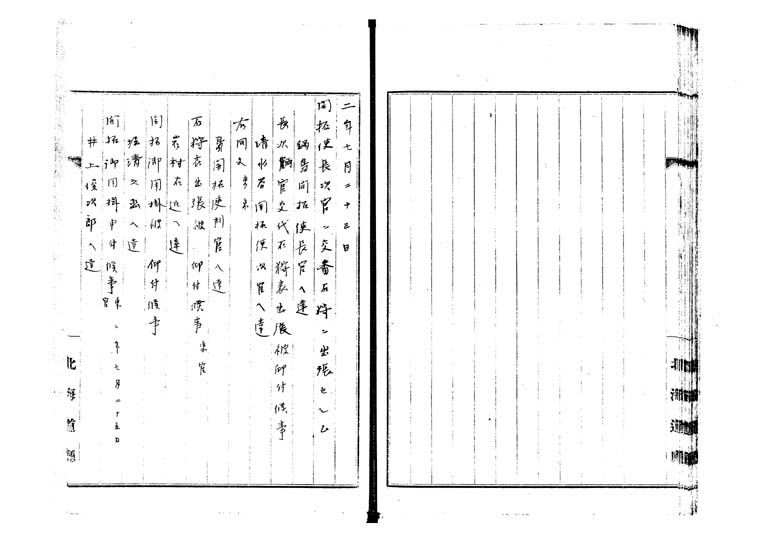 二年七月二十三日
開拓使長次官ニ交番石狩ニ出張セシム
鍋島開拓使長官ヘ達
長次官交代石狩表出張被仰付候事
清水谷開拓使次官ヘ達
右同文 東京
島開拓使判官ヘ達
石狩表出張被 仰付候事 東官
岩村右近ヘ達
開拓御用掛被 仰付候事
堀清之丞ヘ達
開拓御用掛申付候事 東官 二年七月二十五日
井上俊次郎ヘ達
北海道
北海道